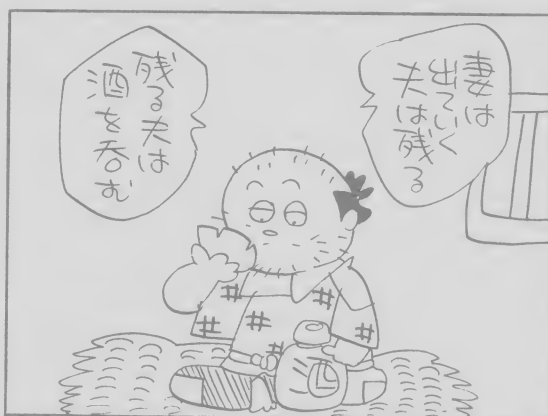 妻は
出ていく
夫は残る
残る夫は
酒を呑む